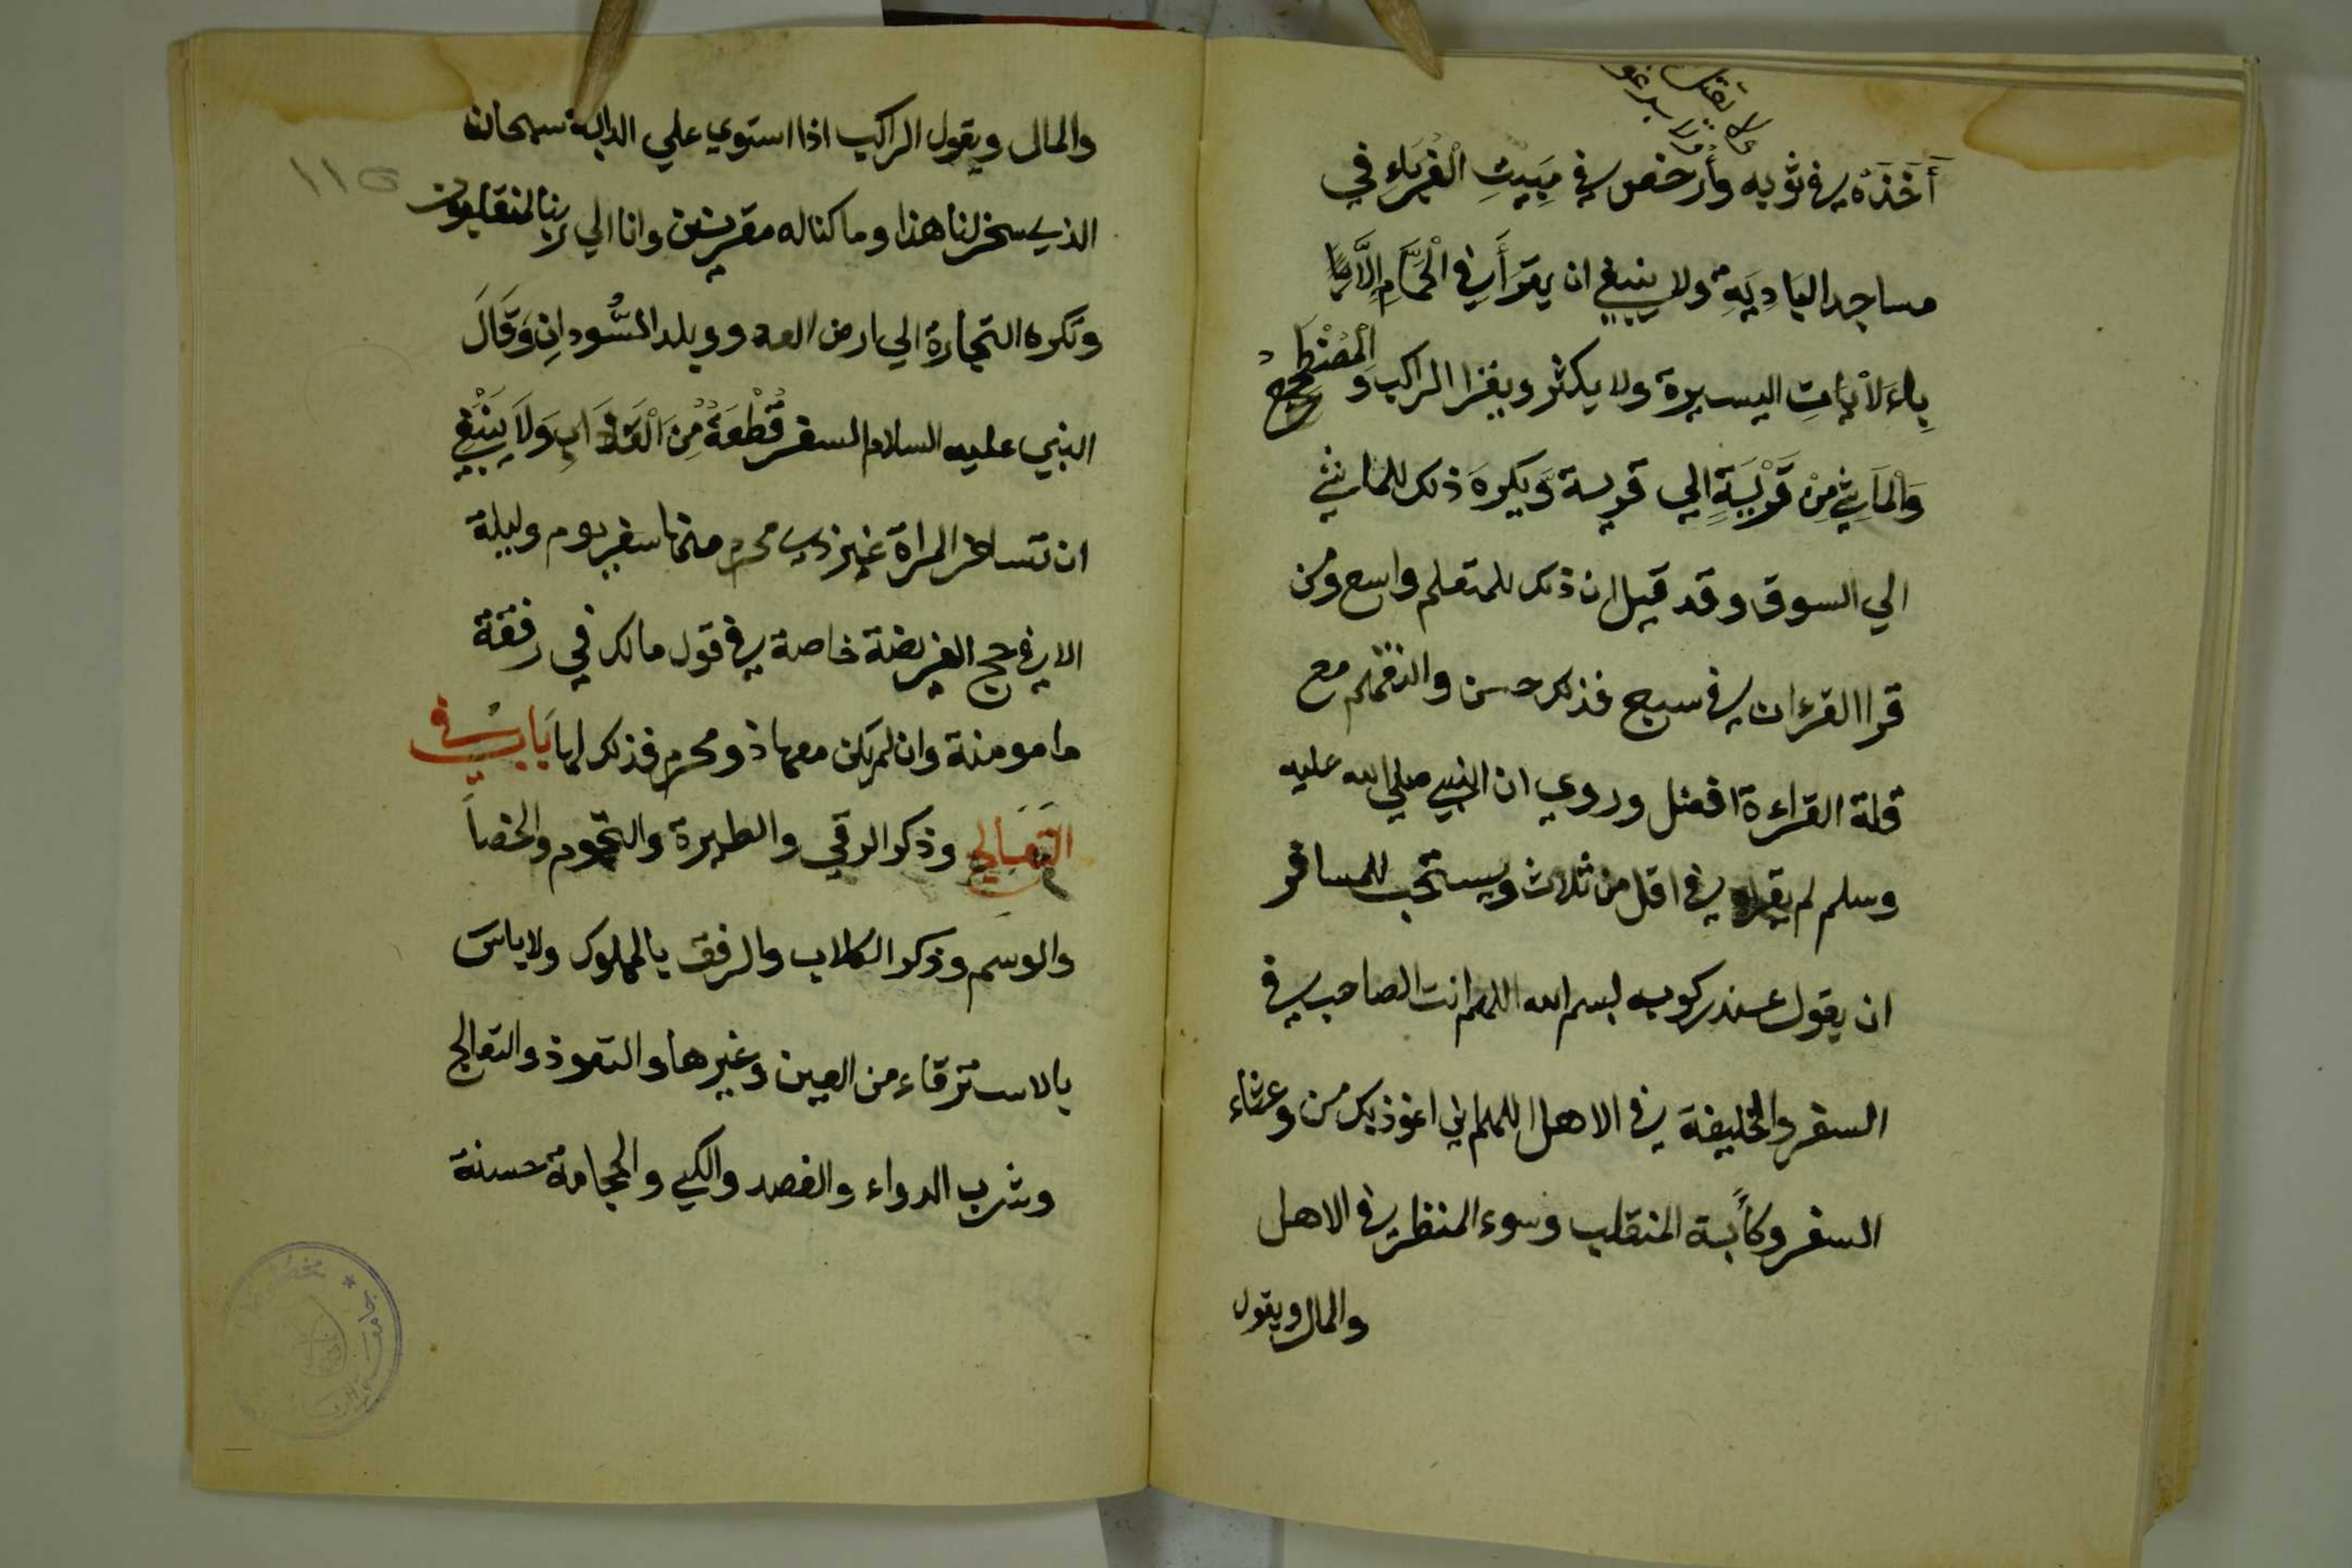 أَخَذَهُ في ثوبه وأرخص في مَبِيتِ الْغُرَبَاءِ في
مساجد البَادِيَةِ ولا ينبغي ان يقرَأَ في الْحَمَّامِ اِلَّا
بِاءَلأيَاتِ اليسيرة ولا يكثر ويقرا الراكب وَ الْمُضْطَجِعُ
وَالْمَاشِي مِنْ قَرْيَةٍ الي قرية وَيكره ذلك للماشي
الي السوق وقد قيل ان ذلك للمتعلم واسع ومن
قرا القرءان في سبع فذلك حسن والتفهم مع
قلة القراءة افضل وروي ان النبي صلي الله عليه
وسلم لم يقراه في اقل من ثلاث ويستحب للمسافر
ان يقول عند ركوبه بسم الله اللهم انت الصاحب في
السفر والخليفة في الاهل اللهم اني اعوذ بك من وعثاء
السفر وكأبة المنقلب وسوء المنظر في الاهل
والمال ويقول
والمال ويقول الراكب اذا استوي علي الدابة سبحان
الذي سخر لنا هذا وما كنا له مقرنين وانا الي ربنا لمنقلبون
وتكره التجارة الي ارض العدو وبلد السُّودانِ وَقَالَ
النبي عليه السلام السفر قُطْعَةُ مِنَ الْعَذَابِ وَلَا يَنْبَغِي
ان تسافر المراة غير ذي محرم منها سفر يوم وليلة
الا في حج الفريضة خاصة في قول مالك في رفقة
مامومنة وان لم يكن معها ذو محرم فذلك لها بَابُ في
التَعَالج وذكر الرقي والطيرة والنجوم والخصا
والوسم وذكر الكلاب والرفق بالمملوك ولا باس
بالاسترقاء من العين وغيرها والتعوذ والتعالج
وشرب الدواء والفصد والكي والحجامة حسنة